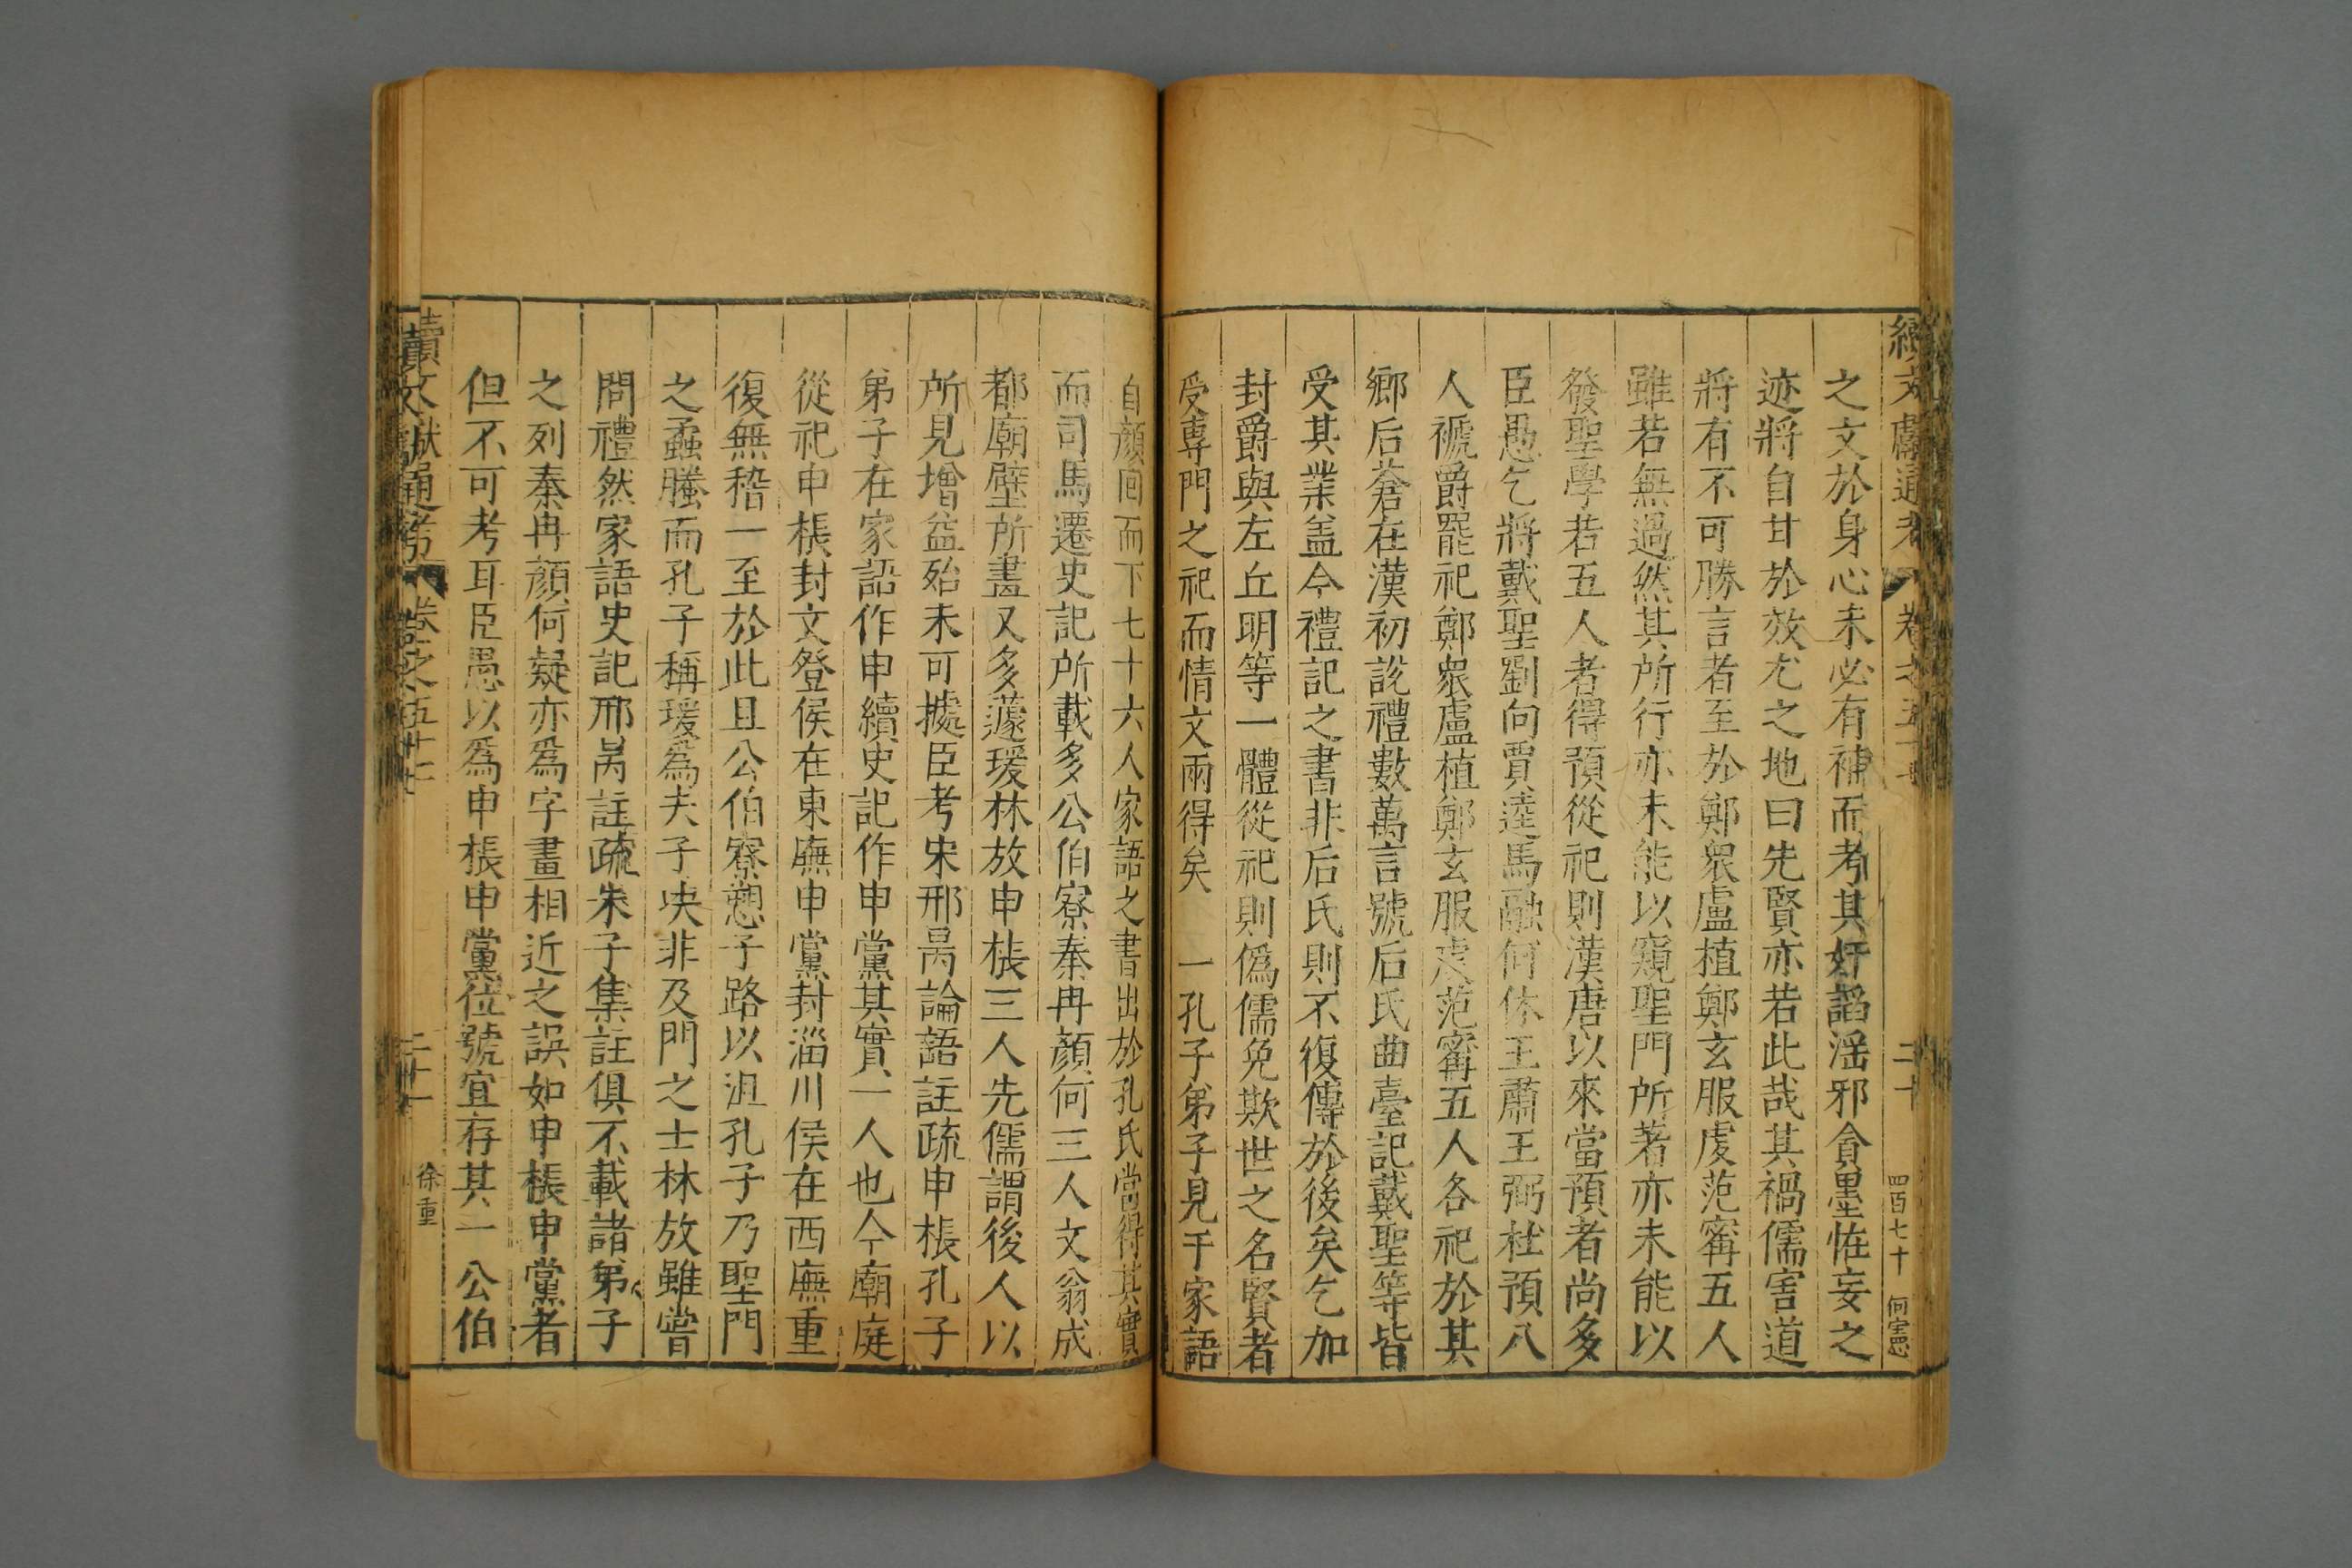 續文獻通考 卷之五十七 二十 四百七十 何憲
之文於身心未必有補而考其奸諂淫邪貪墨恠妄之
迹將自甘於效尤之地曰先賢亦若此哉其禍儒害道
將有不可勝言者至於鄭衆盧植鄭玄服虔范寗五人
雖若無過然其所行亦未能以窺聖門所著亦未能以
發聖學若五人者得預從祀則漢唐以來當預者尚多
臣愚乞將戴聖劉向賈逵馬融何休王肅王弼杜預八
人褫爵罷祀鄭衆盧植鄭玄服虔范寗五人各祀於其
鄉后蒼在漢初說禮數萬言號后氏曲臺記戴聖等皆
受其業盖今禮記之書非后氏則不復傳於後矣乞加
封爵與左丘明等一體從祀則僞儒免欺世之名賢者
受專門之祀而情文兩得矣 一孔子弟子見于家語
自顔回而下七十六人家語之書出於孔氏當得其實
而司馬遷史記所載多公伯寮秦冉顔何三人文翁成
都廟壁所畫又多蘧瑗林放申棖三人先儒謂後人以
所見增益殆未可據臣考宋邢昺論語註疏申棖孔子
弟子在家語作申續史記作申黨其實一人也今廟庭
從祀申棖封文登侯在東廡申黨封淄川侯在西廡重
復無稽一至於此且公伯寮愬子路以沮孔子乃聖門
之蟊螣而孔子稱瑗爲夫子决非及門之士林放雖嘗
問禮然家語史記邢昺註疏朱子集註俱不載諸弟子
之列秦冉顔何疑亦爲字畫相近之誤如申棖申黨者
但不可考耳臣愚以爲申棖申黨位號宜存其一公伯
續文獻通考 卷之五十七 二十一 徐重